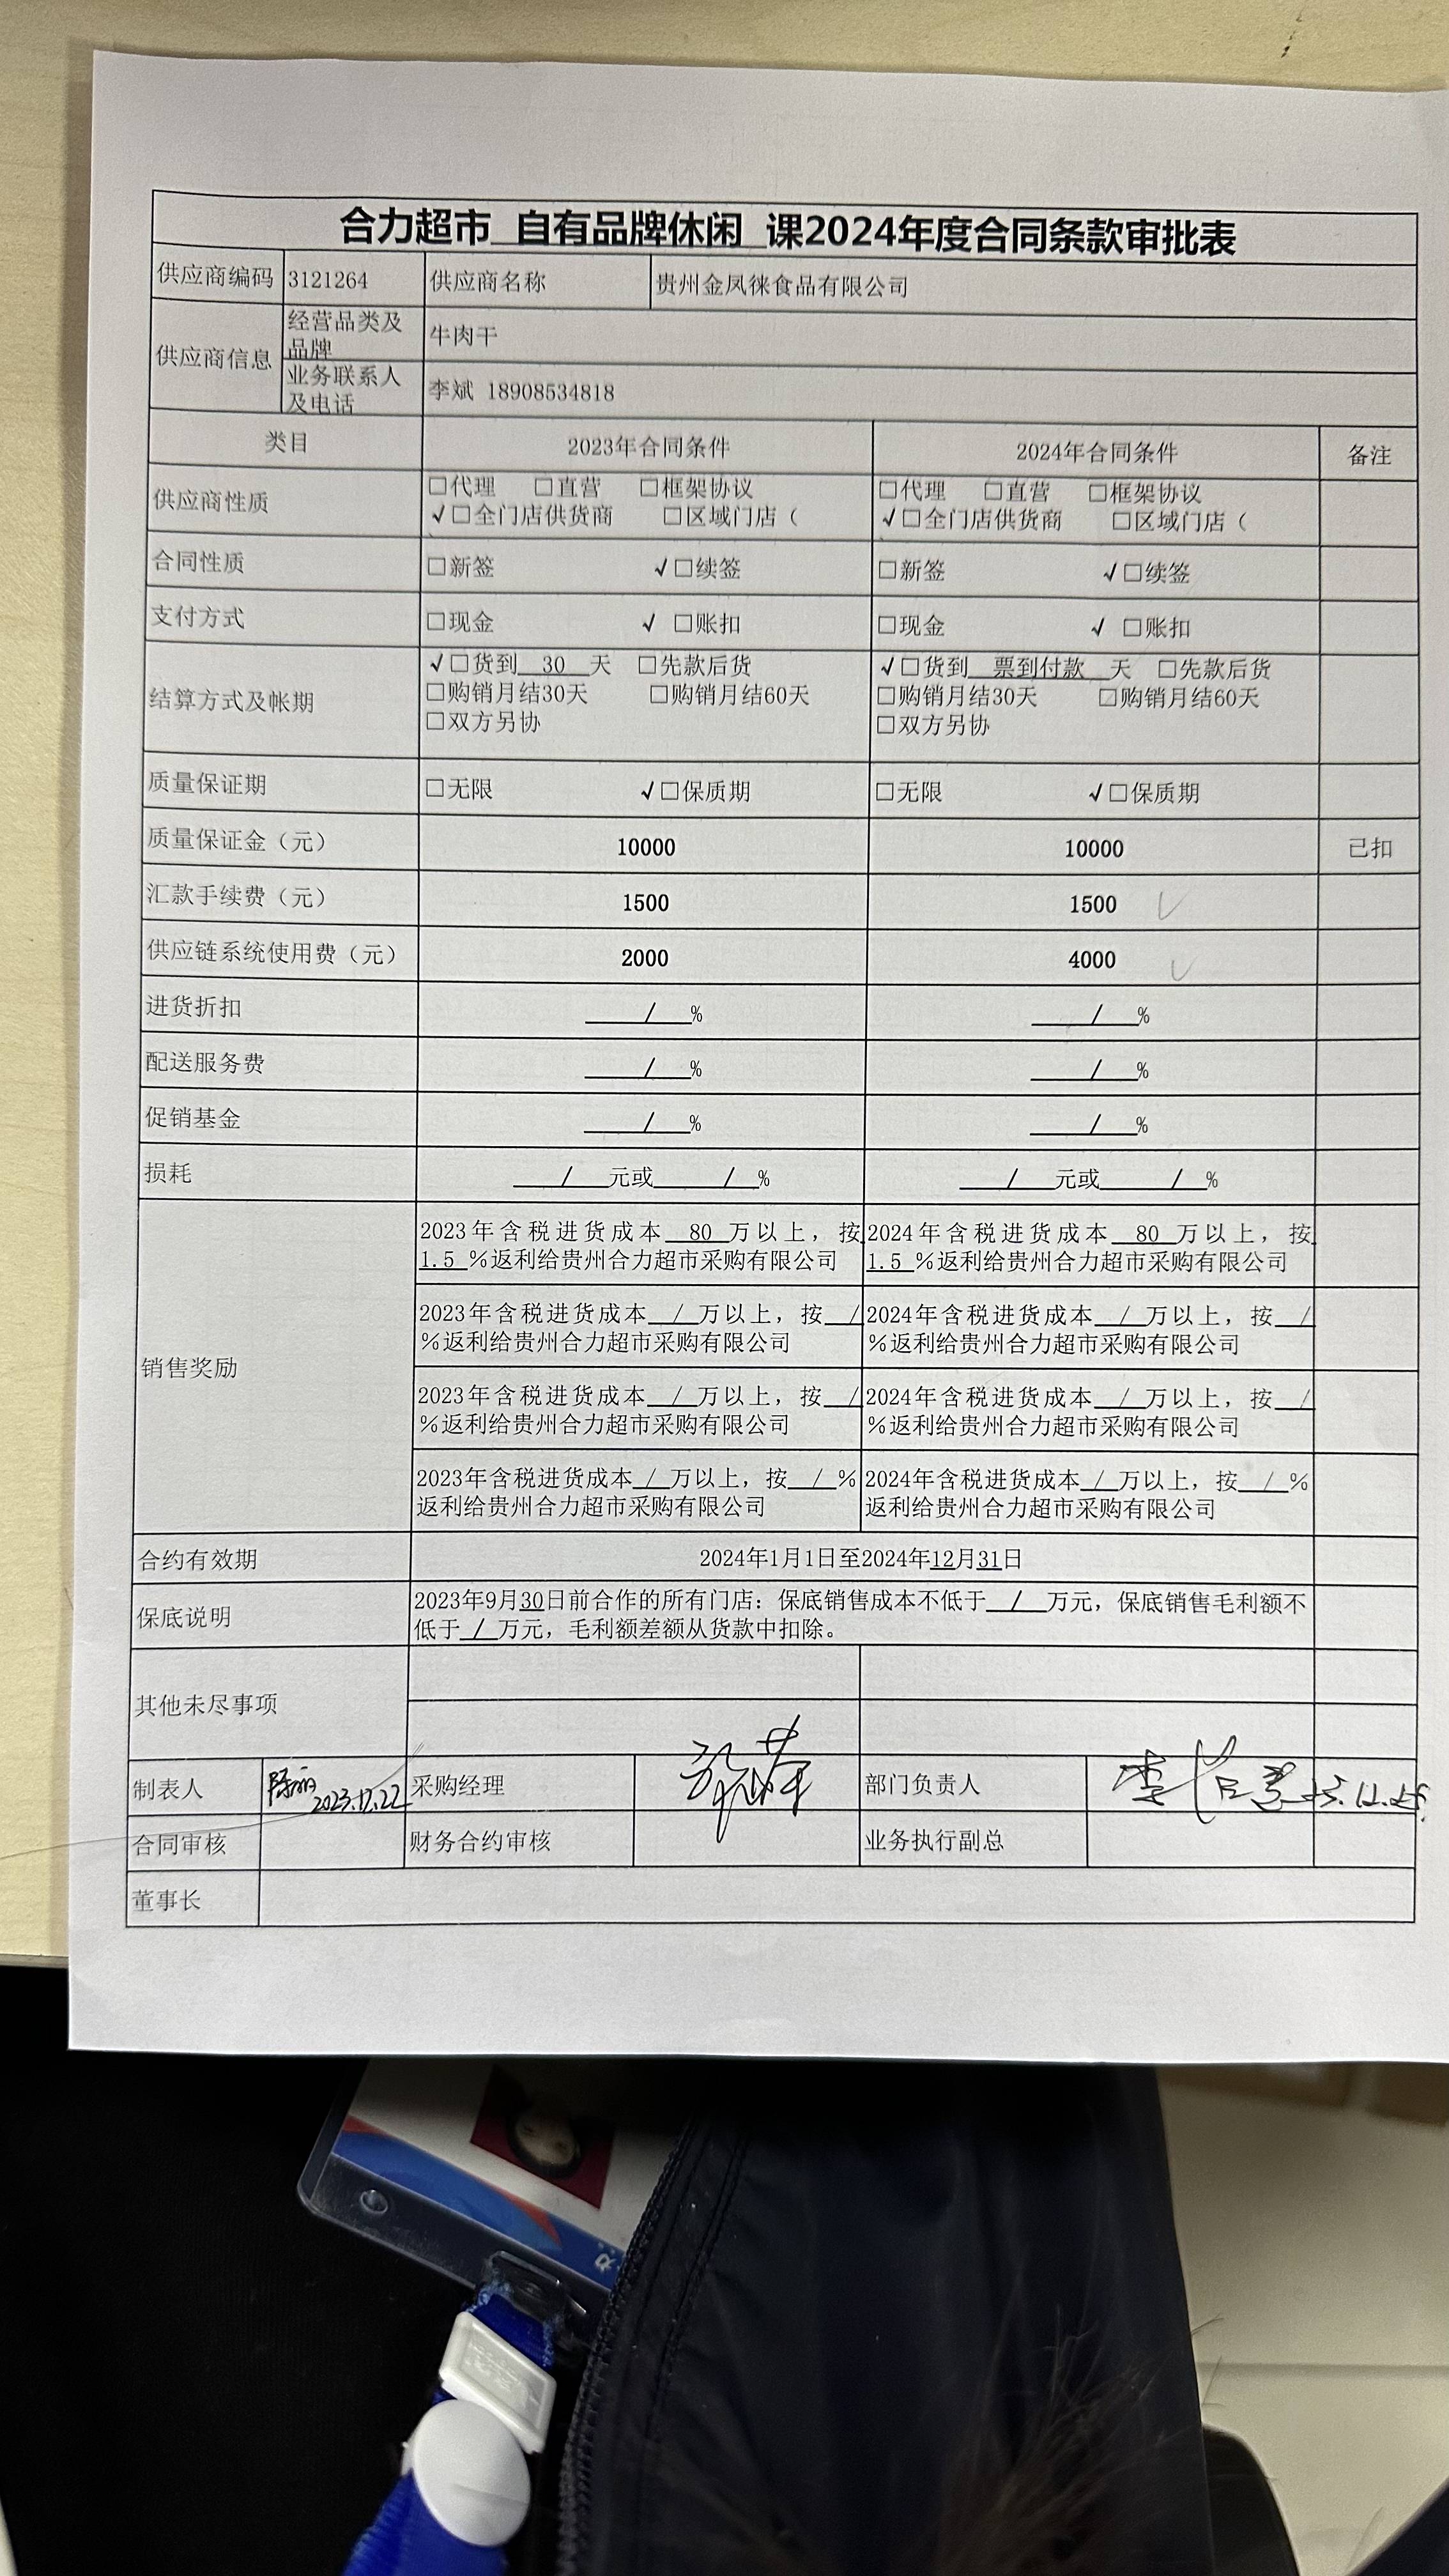 合力超市 自有品牌休闲 课2024年度合同条款审批表
供应商编码 3121264 供应商名称 贵州金凤徕食品有限公司
供应商信息
经营品类及
品牌
牛肉干
业务联系人
及电话
李斌 18908534818
类目 2023年合同条件 2024年合同条件 备注
供应商性质
□代理 □直营 □框架协议
√□全门店供货商 □区域门店（
□代理 □直营 □框架协议
√□全门店供货商 □区域门店（
合同性质 □新签 √□续签 □新签 √□续签
支付方式 □现金 √ □账扣 □现金 √ □账扣
结算方式及帐期
√□货到 30 天 □先款后货
□购销月结30天 □购销月结60天
□双方另协
√□货到 票到付款 天 □先款后货
□购销月结30天 □购销月结60天
□双方另协
质量保证期 □无限 √□保质期 □无限 √□保质期
质量保证金（元） 10000 10000 已扣
汇款手续费（元） 1500 1500 √
供应链系统使用费（元） 2000 4000 √
进货折扣 / % / %
配送服务费 / % / %
促销基金 / % / %
损耗 / 元或 / % / 元或 / %
销售奖励
2023年含税进货成本 80 万以上，按
1.5 %返利给贵州合力超市采购有限公司
2024年含税进货成本 80 万以上，按
1.5 %返利给贵州合力超市采购有限公司
2023年含税进货成本 / 万以上，按 /
%返利给贵州合力超市采购有限公司
2024年含税进货成本 / 万以上，按 /
%返利给贵州合力超市采购有限公司
2023年含税进货成本 / 万以上，按 /
%返利给贵州合力超市采购有限公司
2024年含税进货成本 / 万以上，按 /
%返利给贵州合力超市采购有限公司
2023年含税进货成本 / 万以上，按 / %
返利给贵州合力超市采购有限公司
2024年含税进货成本 / 万以上，按 / %
返利给贵州合力超市采购有限公司
合约有效期 2024年1月1日至2024年12月31日
保底说明
2023年9月30日前合作的所有门店：保底销售成本不低于 / 万元，保底销售毛利额不
低于 / 万元，毛利额差额从货款中扣除。
其他未尽事项
制表人 2023.12.22 采购经理 部门负责人
合同审核 财务合约审核 业务执行副总
董事长